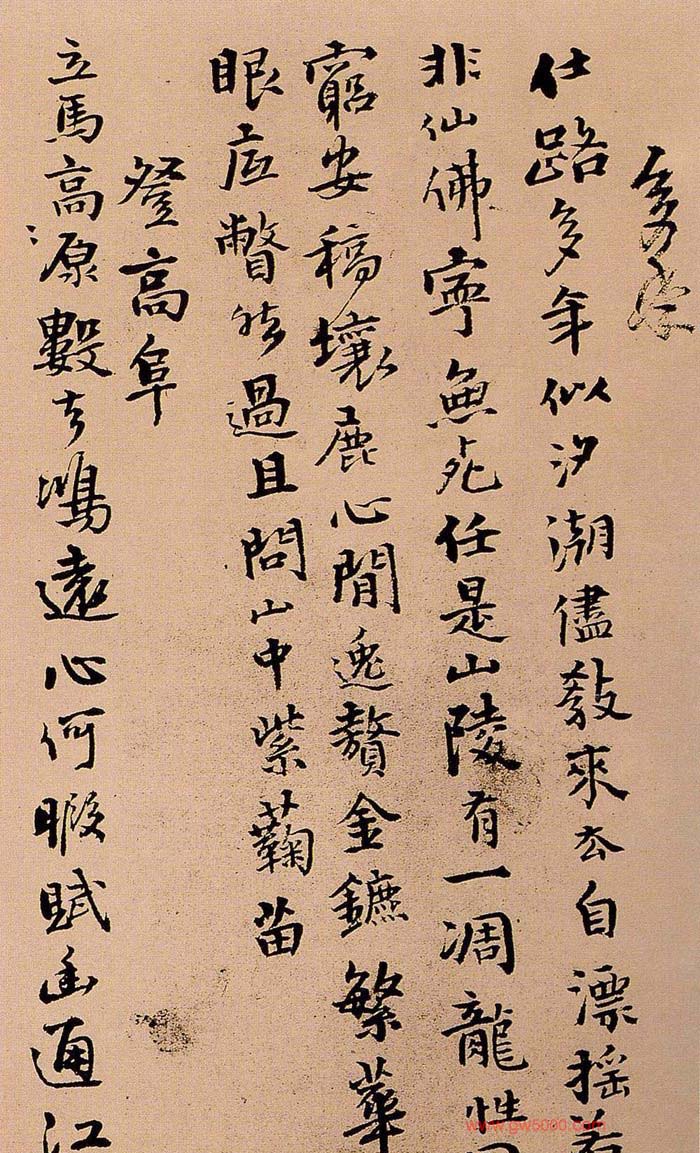 多
仕路多年似汐潮儘教來去自漂搖若
非仙佛寧無死任是山陵有一凋龍性
窮安稿壤鹿心閒逸贅金鑣繁華
眼底瞥然過且問山中紫蘜苗
登高阜
立馬高源數去鴻遠心何暇賦幽通江
www.gw5000.com